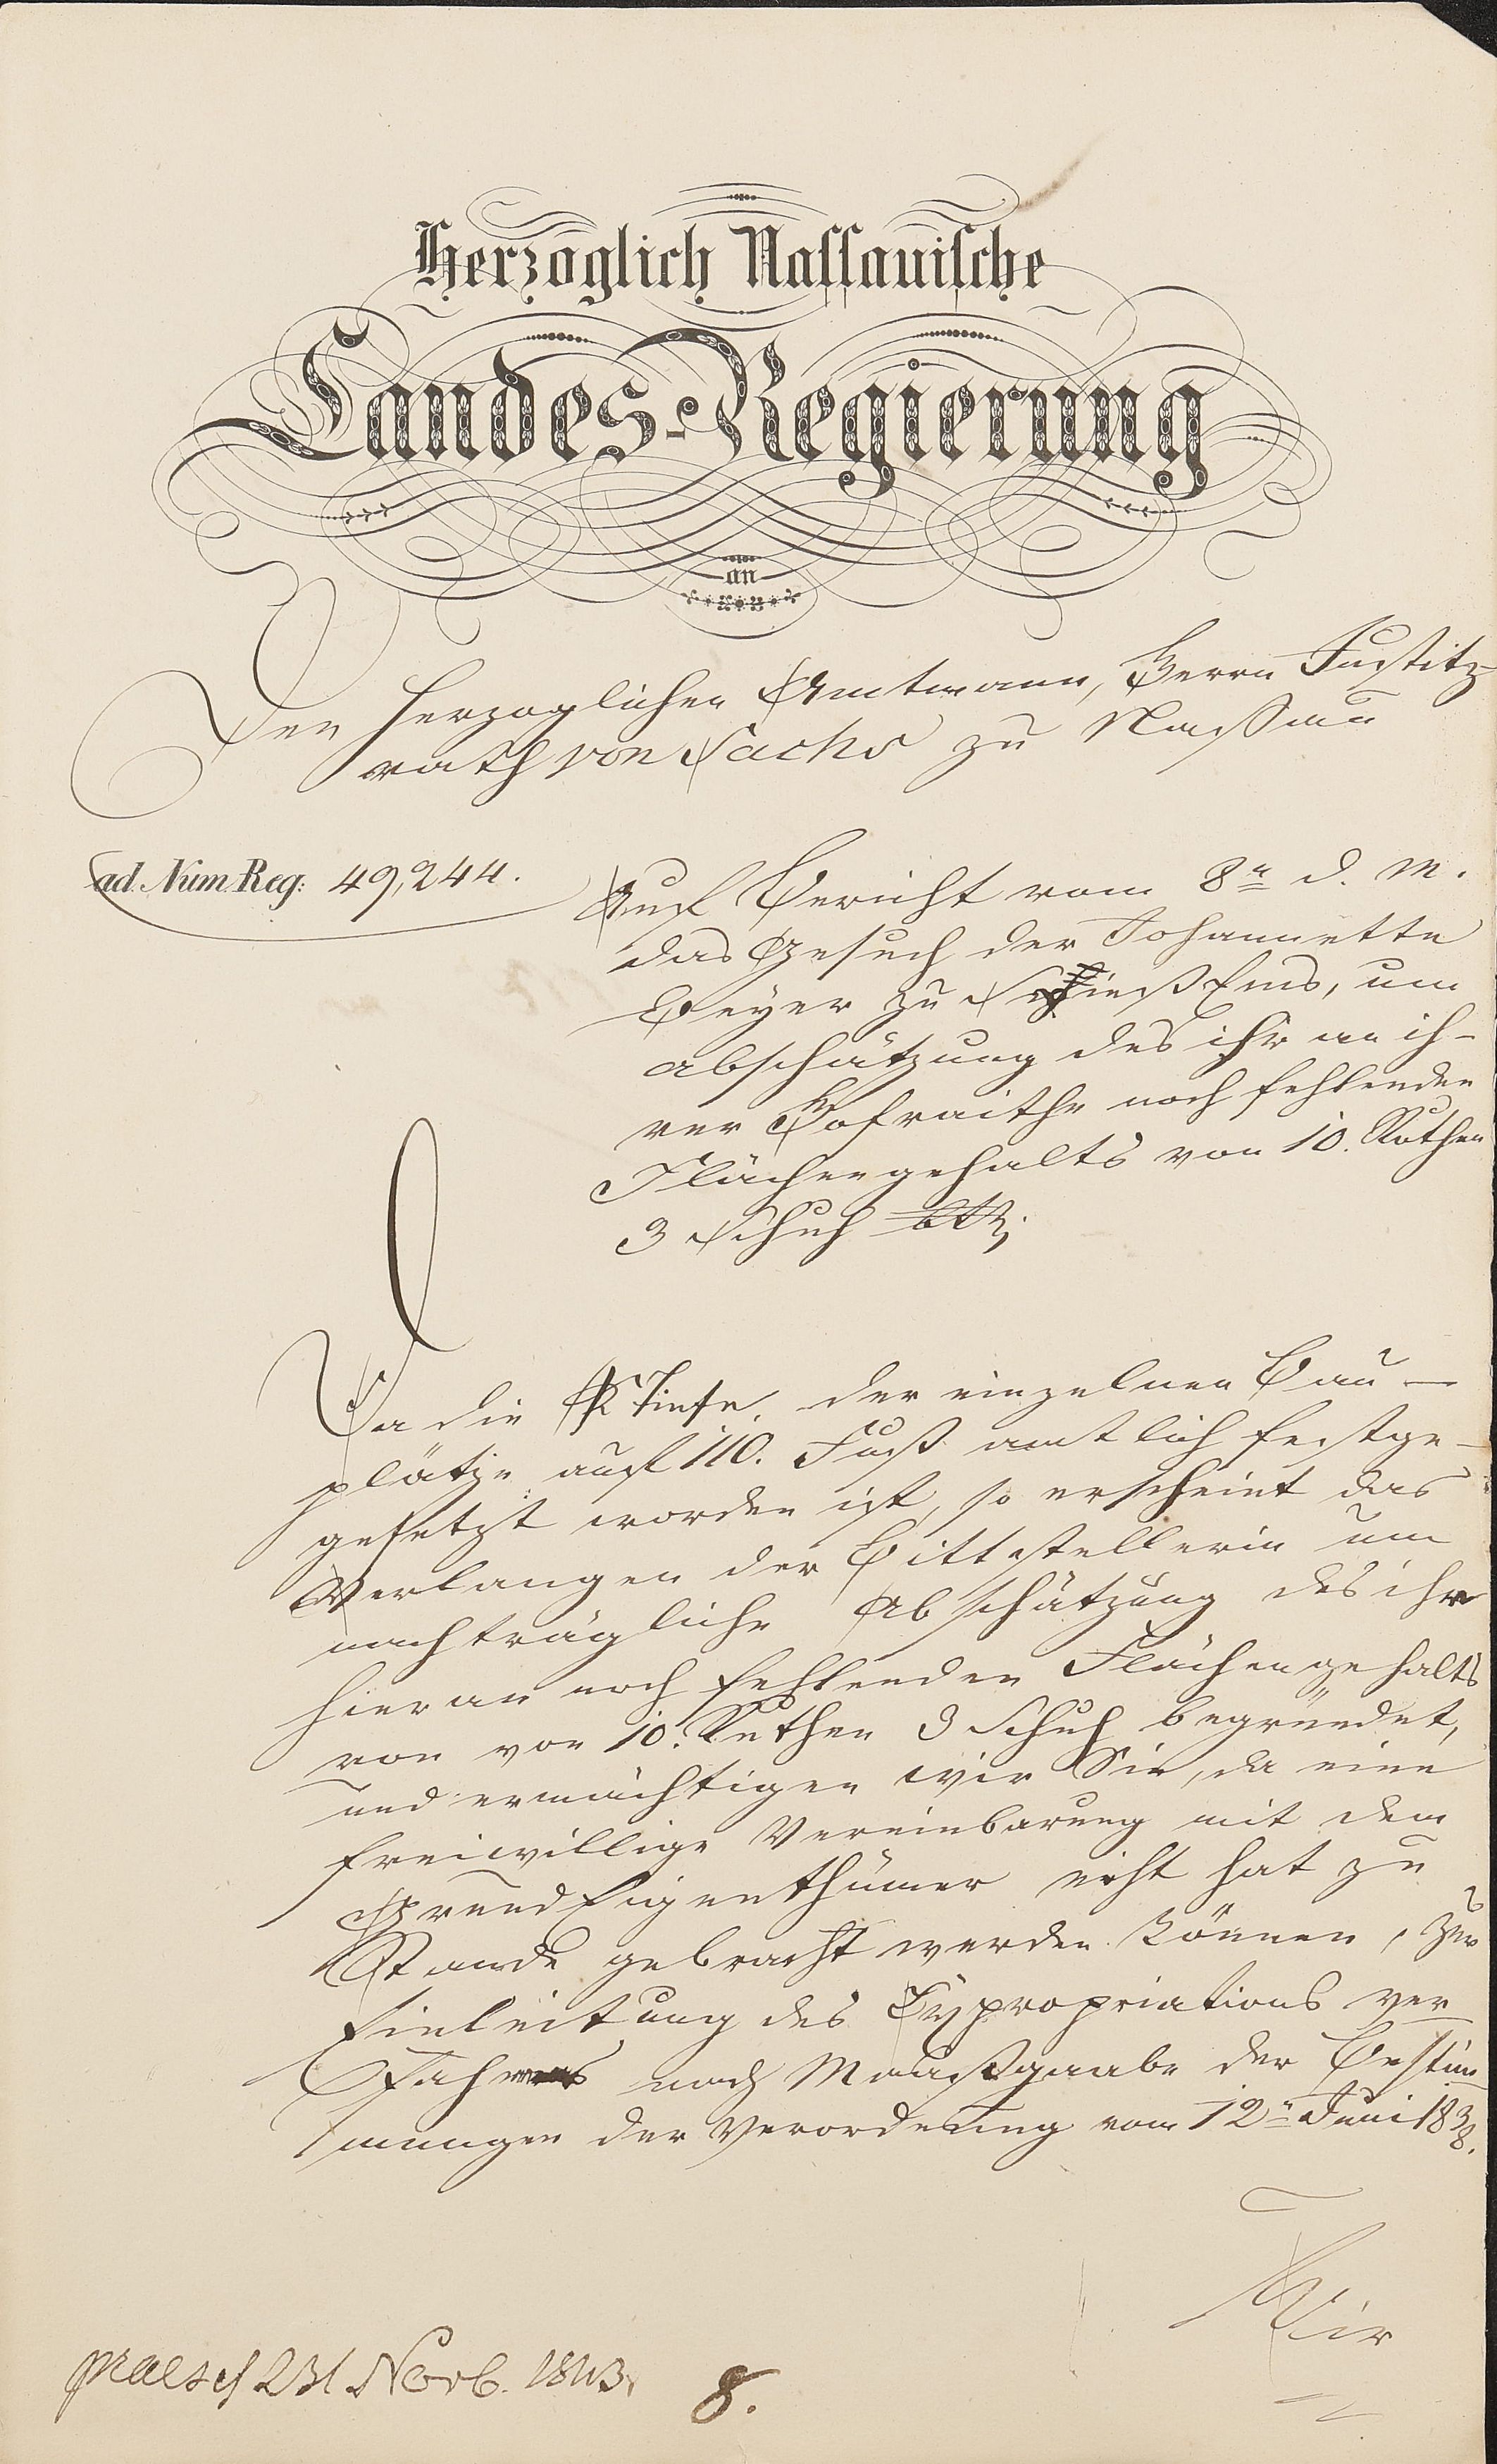 Herzoglich Nassauische
Landes-Regierung
an
Den Herzoglichen Amtmann, Herrn Justitz-
rath von Sachs zu Nassau
ad. Num. Reg: 49,244.
Auf Bericht vom 8n d. M.
das Gesuch der Johannette
Beyer zu Ems, um
Abschätzung des ihr an ih-
rer Hofraithe noch fehlenden
Flächengehalts von 10. Ruthen
3 Schuh btr.
Da die Tiefe der einzelnen Bau-
plätze auf 110. Fuß amtlich festge-
gesetzt worden ist, so erscheint das
Verlangen der Bittstellerin um
nachträgliche Abschätzung des ihr
hieran noch fehlenden Flächengehalts
von von 10. Ruthen 3 Schuh begründet,
und ermächtigen wir Sie, da eine
freiwillige Vereinbarung mit dem
GrundEigenthümer nicht hat zu
Stande gebracht werden können, zur
Einleitung des Expropriations ver-
fahrens nach Maaßgaabe der Bestim-
mungen der Verordnung vom 12n Juni 1838.
Wir
praes d 23t Novb. 1843.
8.